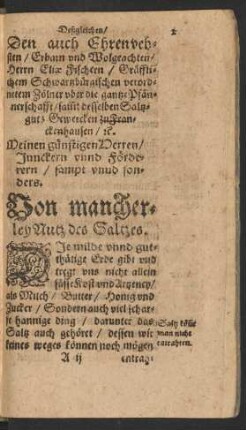 Deßgleichen/
2
Den auch Ehrenveh-
sten / Erbarn und Wolgeachten/
Herrn Eliæ Fischern / Gräfflich
chem Schwartzbürgischen verord-
netem Zölner vber die gantze Pfän-
nerschafft / sampt desselben Saltz-
gut / Gewercken zu Fran-
ckenhausen / ꝛc.
Meinen günstigen Herren/
Junckern vnnd Förde-
rern / sampt vnnd son-
ders.
Von mancher-
ley Nutz des Saltzes.
Die milde vnnd gut-
thätige Erde gibt vnd
tregt vns nicht allein
süsse Kost vnd Artzeney/
als Milch / Butter / Honig vnd
Zucker / Sondern auch viel scharf-
fe hannige ding / darunter das
Saltz auch gehöret / dessen wir
keines weges können noch mögen
Saltz köñe
man nicht
entrathen.
A ij
entrap-